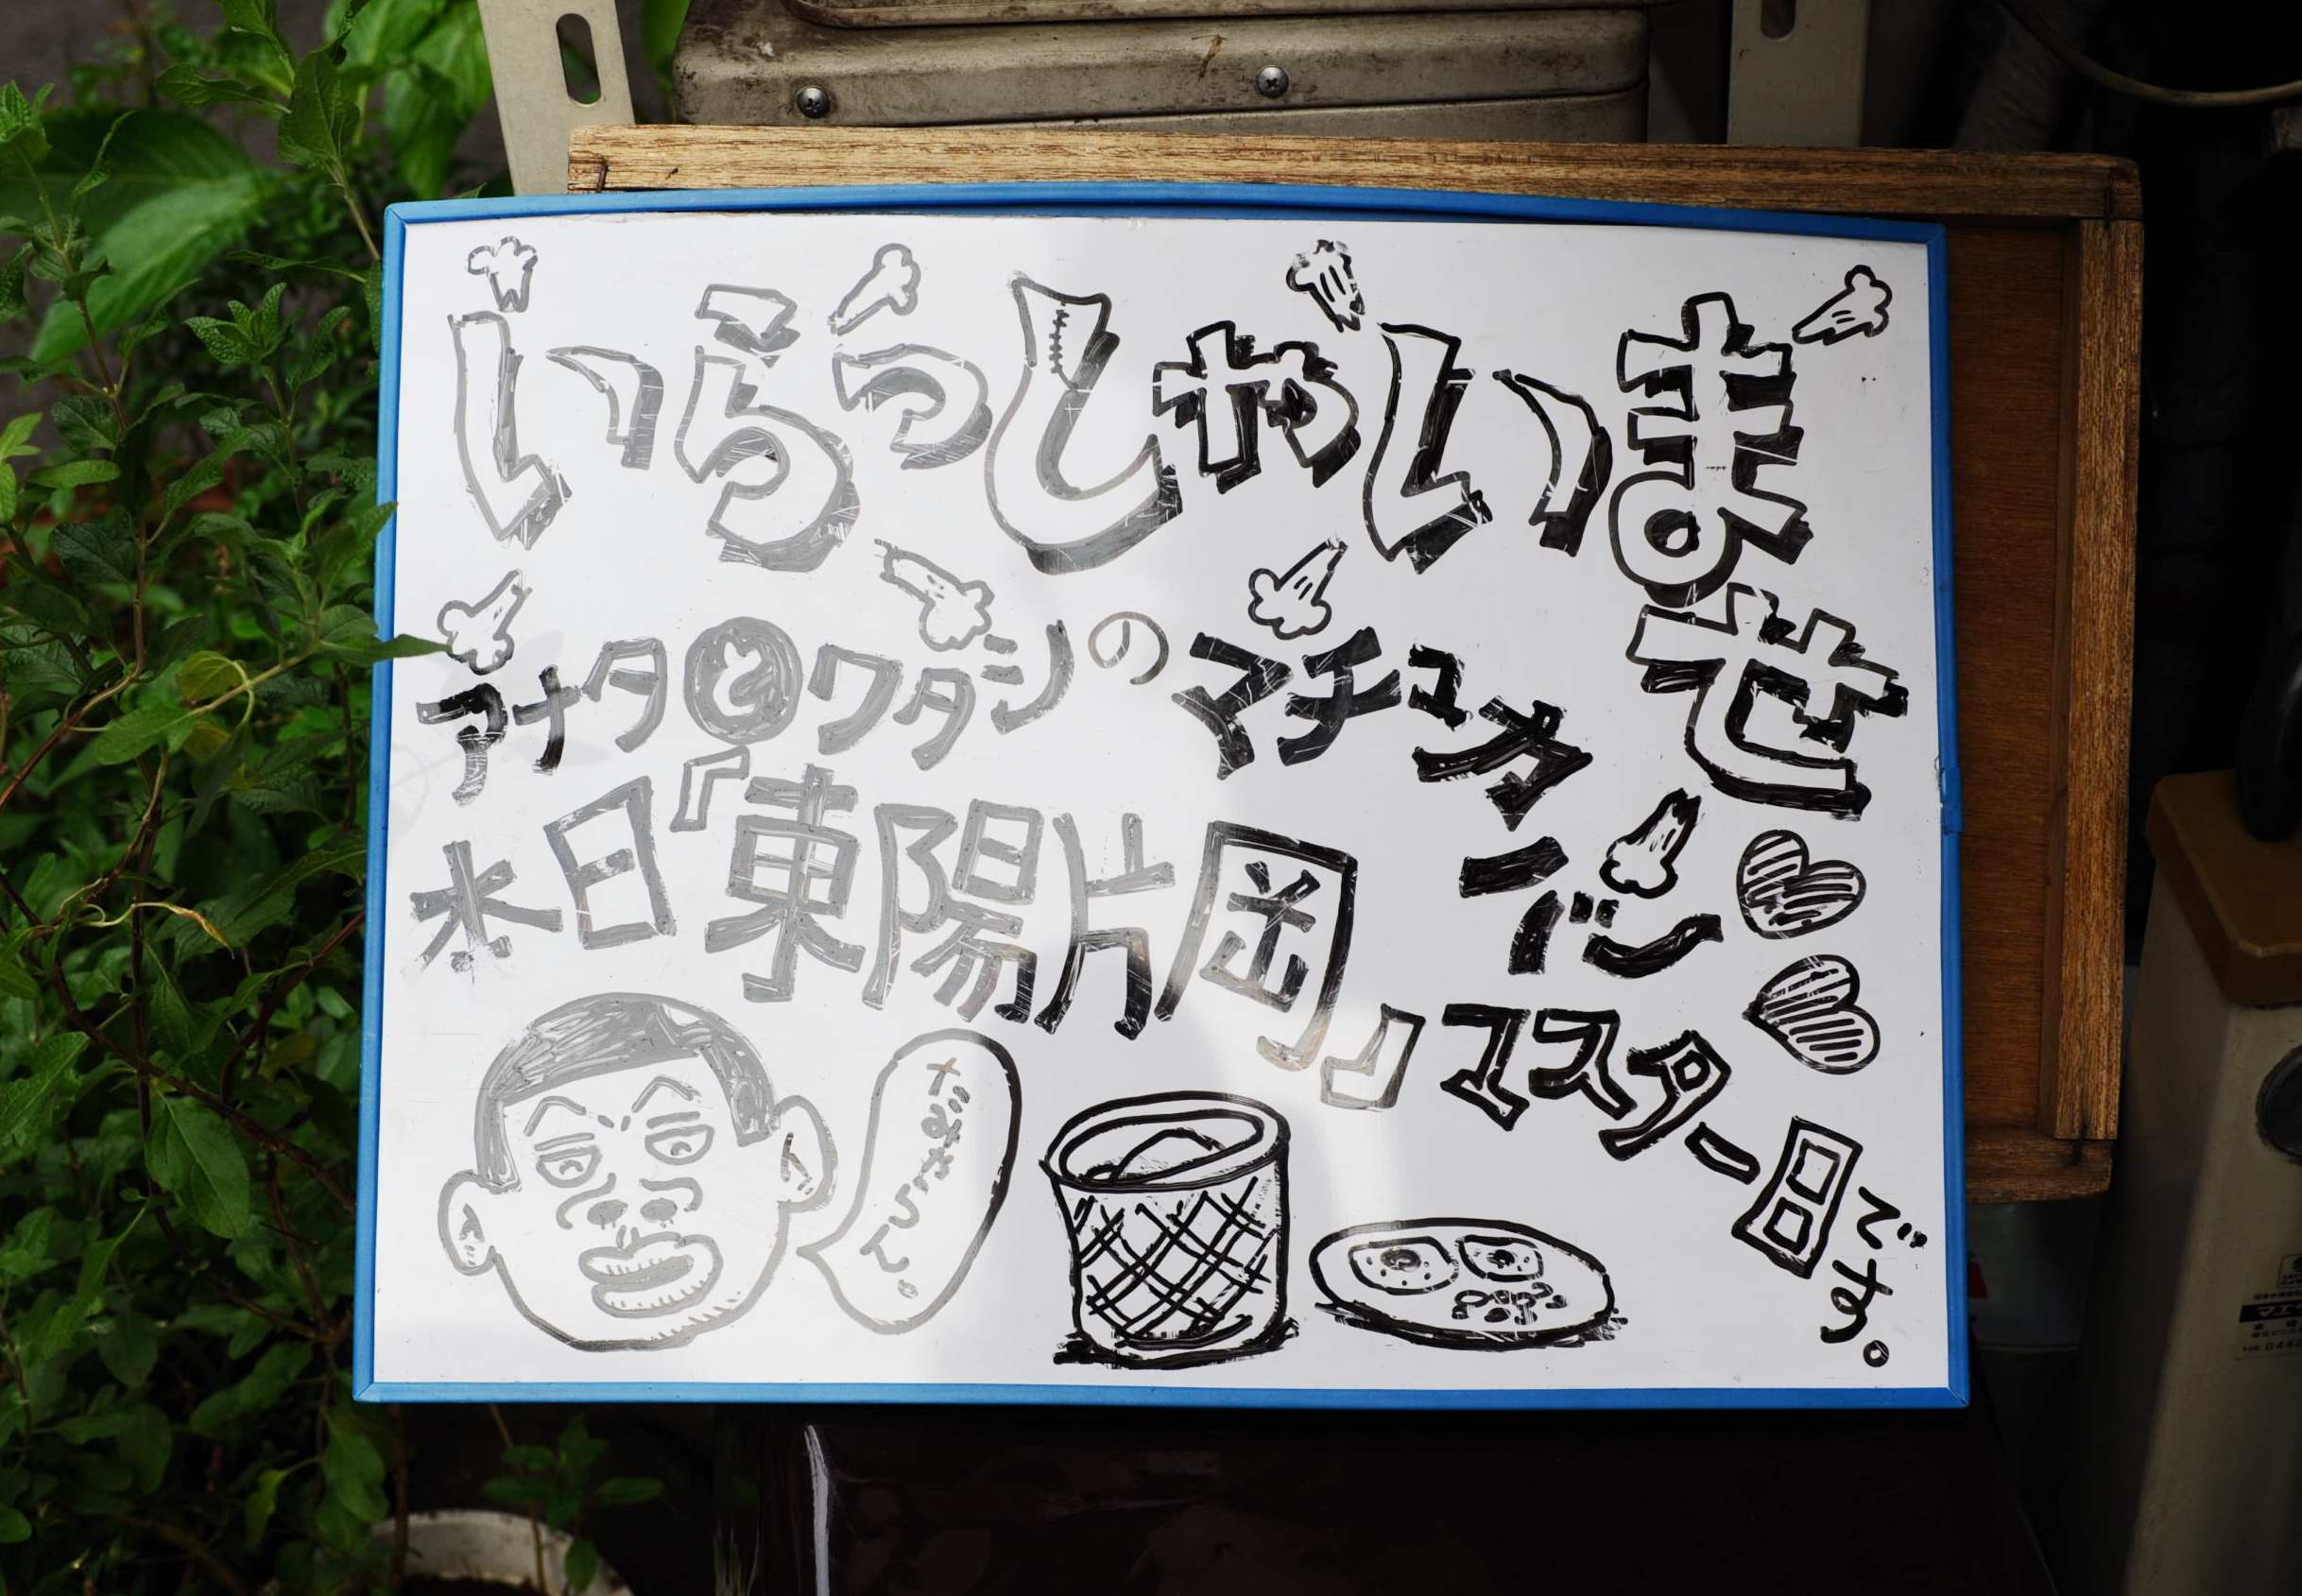 いらっしゃいませ
アナタとワタシのマチュカバーン
本日『東陽片岡』マスター日です。